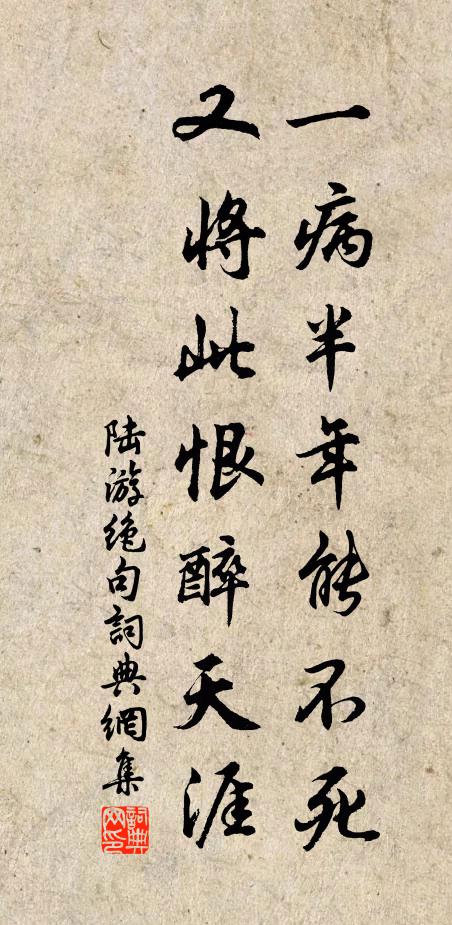 一病半年能不死
又将此恨醉天涯
陆游绝句詞典網集
詞典
网印